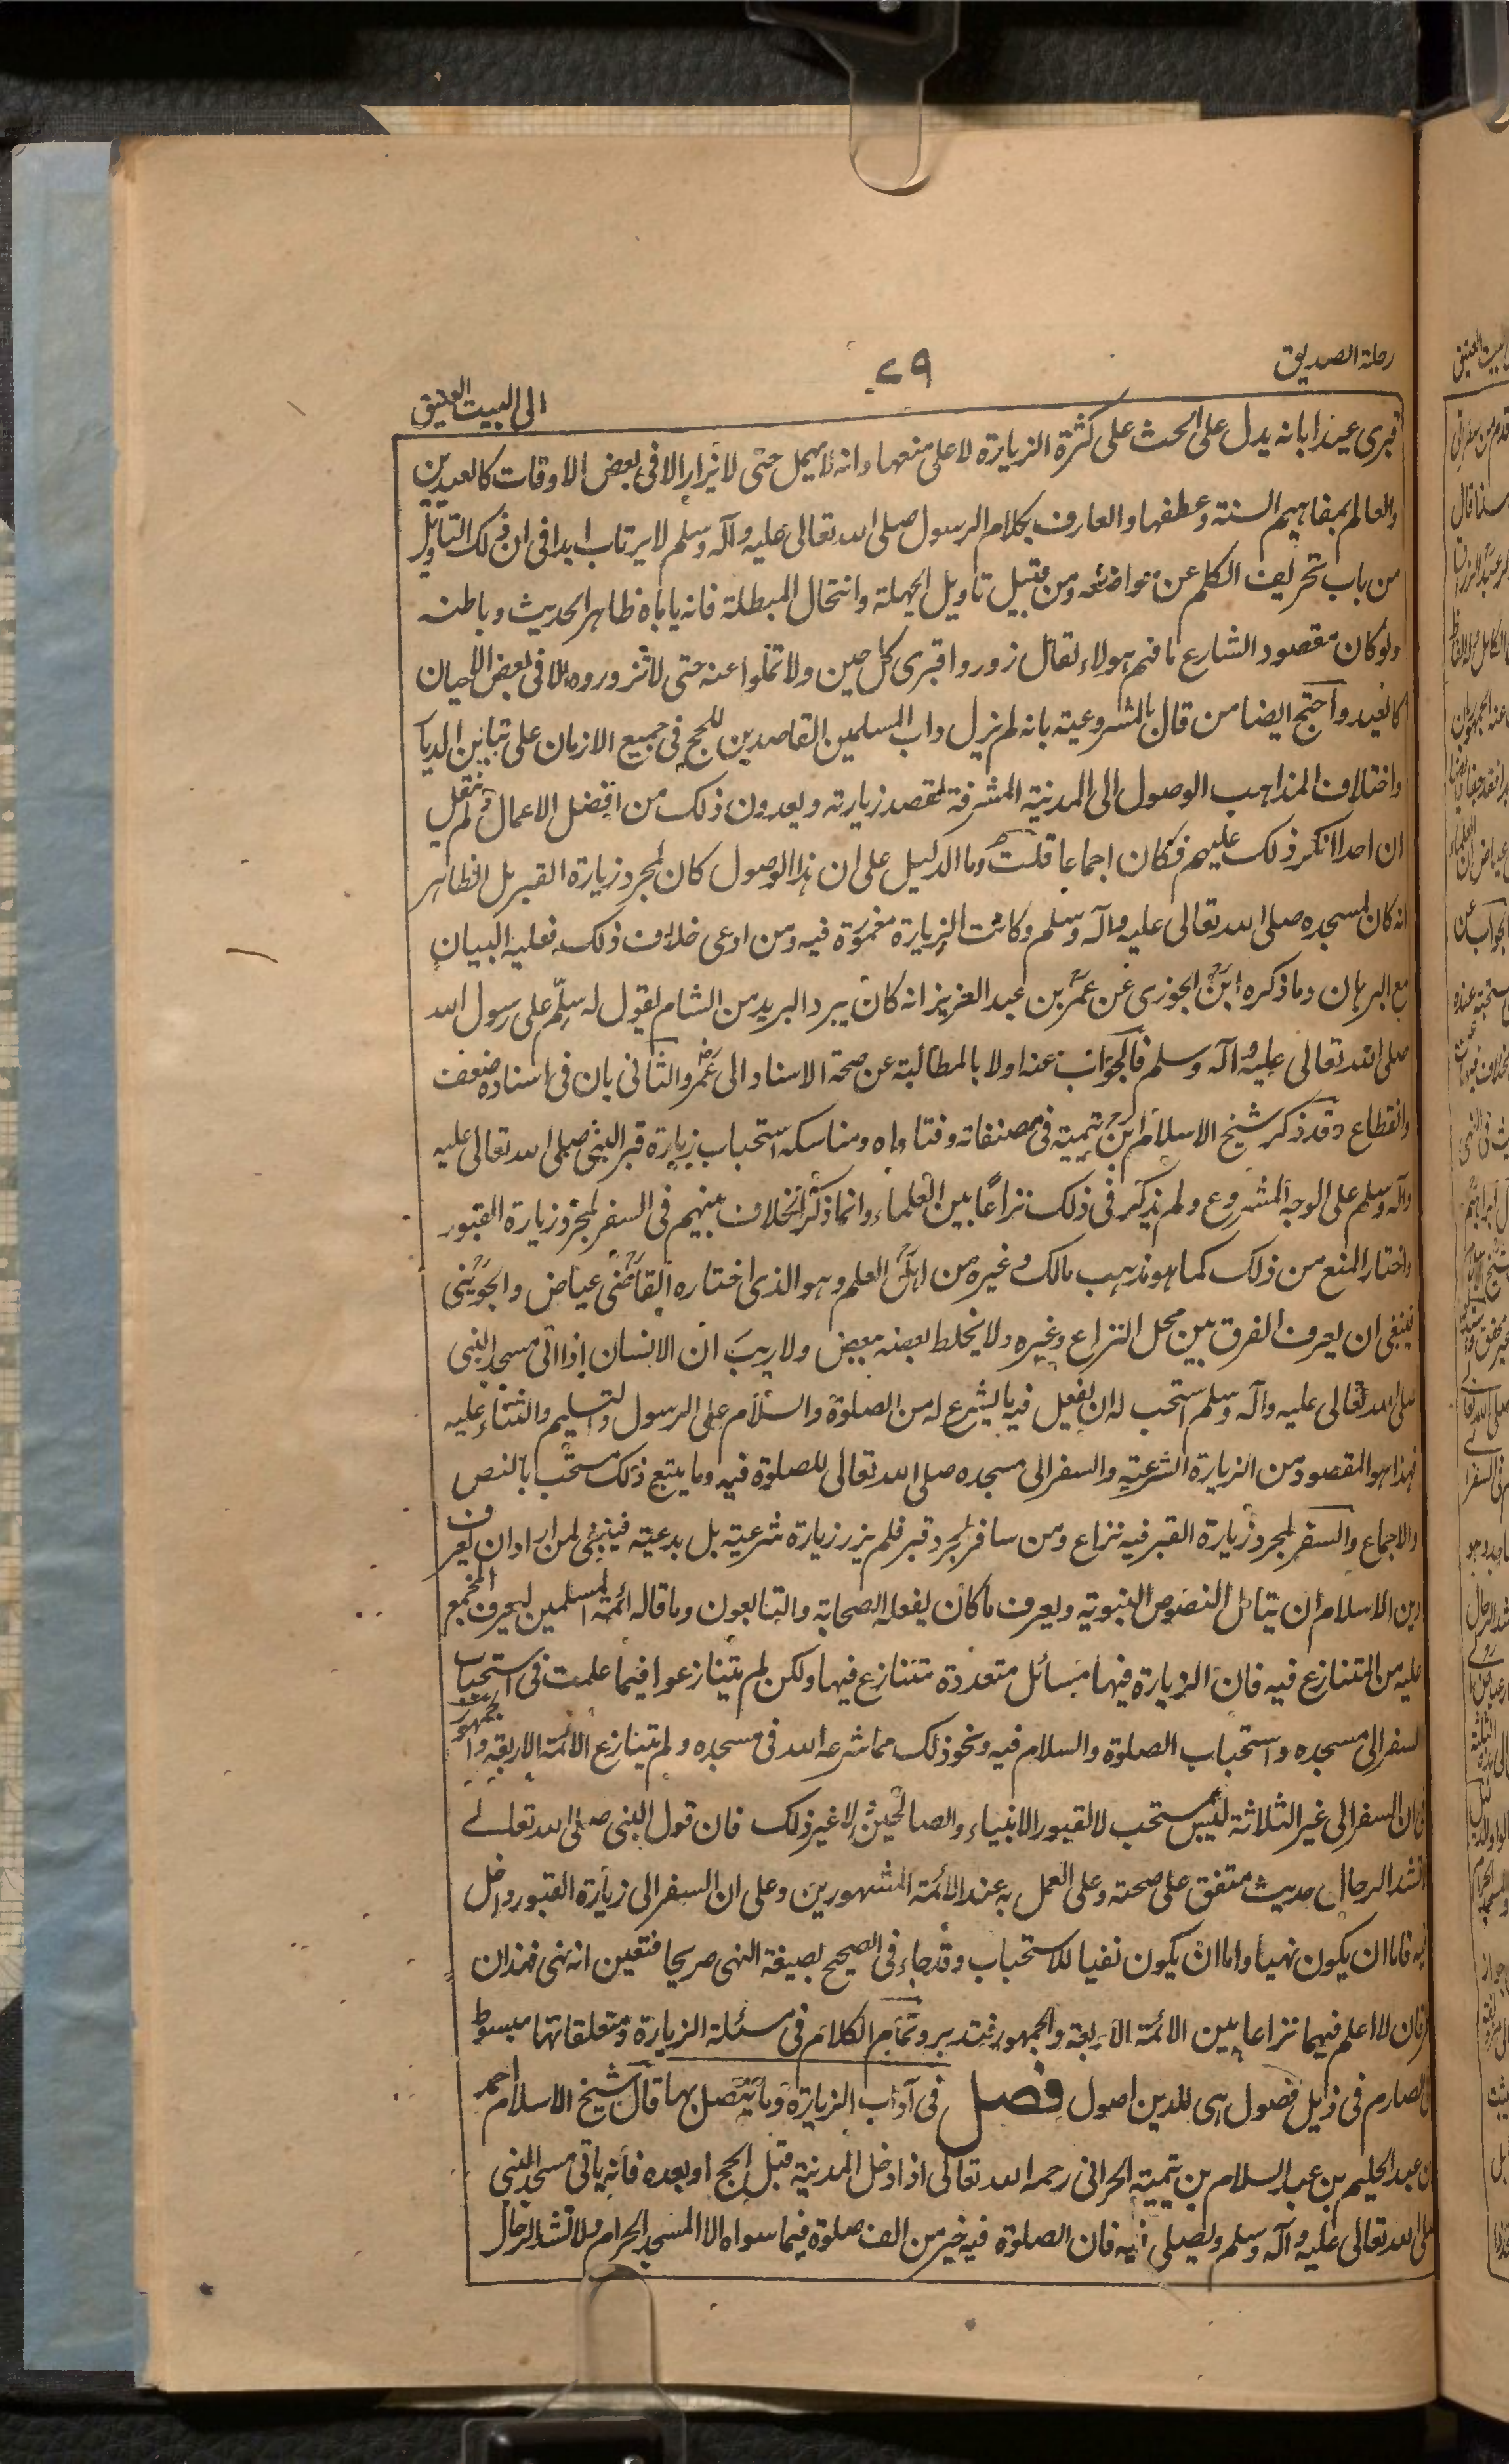 رحلة الصديق
٧٩
الى البيت العتيق
قبرى عيدا بانه يدل على الحث على كثرة الزيارة لا على منعها وانه لا يهمل حتى لا يزار الا فى بعض الاوقات كالعيدين
والعالم بمفاهيم السنة وعطفها والعارف بكلام الرسول صلى الله تعالى عليه وآله وسلم لا يرتاب ابدا فى ان ذلك التاويل
من باب تحريف الكلم عن مواضعه ومن قبيل تاويل الجهلة وانتحال المبطلة فانه ياباه ظاهر الحديث وباطنه
ولو كان مقصود الشارع ما فهم هولاء لقال زوروا قبرى كل حين ولا تخلوا عنه حتى لا تزوروه الا فى بعض الاحيان
كالعيد واحتج ايضا من قال بالمشروعية بانه لم يزل داب المسلمين القاصدين للحج فى جميع الازمان على تباين الديار
واختلاف المذاهب الوصول الى المدينة المشرفة لقصد زيارته ويعدون ذلك من افضل الاعمال ولم ينقل
ان احدا انكر ذلك عليهم فكان اجماعا قلت وما الدليل على ان هذا الوصول كان لمجرد زيارة القبر بل الظاهر
انه كان لمسجده صلى الله تعالى عليه وآله وسلم وكانت الزيارة مغمورة فيه ومن ادعى خلاف ذلك فعليه البيان
مع البرهان وما ذكره ابن الجوزى عن عمر بن عبد العزيز انه كان يبرد البريد من الشام يقول له سلّم على رسول الله
صلى الله تعالى عليه وآله وسلم فالجواب عنه اولا بالمطالبة عن صحة الاسناد الى عمر والثانى بان فى اسناده ضعف
وانقطاع وقد ذكر شيخ الاسلام ابن تيمية فى مصنفاته وفتاواه ومناسكه استحباب زيارة قبر النبى صلى الله تعالى عليه
وآله وسلم على الوجه المشروع ولم يذكر فى ذلك نزاعًا بين العلماء وانما ذكر الخلاف بينهم فى السفر لمجرد زيارة القبور
واختار المنع من ذلك كما هو مذهب مالك وغيره من اهل العلم وهو الذى اختاره القاضى عياض والجوينى
فينبغى ان يعرف الفرق بين محل النزاع وغيره ولا يخلط بعضه ببعض ولا ريب ان الانسان اذا اتى مسجد النبى
صلى الله تعالى عليه وآله وسلم استحب له ان يفعل فيه ما يشرع له من الصلوة والسلام على الرسول والتسليم والثناء عليه
فهذا هو المقصود من الزيارة الشرعية والسفر الى مسجده صلى الله تعالى للصلوة فيه وما يتبع ذلك مستحب بالنص
والاجماع والسفر لمجرد زيارة القبر فيه نزاع ومن سافر لمجرد قبر فلم يزر زيارة شرعية بل بدعية فينبغى لمن اراد ان يعرف
دين الاسلام ان يتامل النصوص النبوية ويعرف ما كان يفعله الصحابة والتابعون وما قاله ائمة المسلمين ليعرف المجمع
عليه من المتنازع فيه فان الزيارة فيها مسائل متعددة متنازع فيها ولكن لم يتنازعوا فيما علمت فى استحباب
السفر الى مسجده واستحباب الصلوة والسلام فيه ونحو ذلك مما شرعه الله فى مسجده ولم يتنازع الائمة الاربعة والجمهور
فى ان السفر الى غير الثلاثة ليس بمستحب لا لقبور الانبياء والصالحين ولا غير ذلك فان قول النبى صلى الله تعالے
لا تشد الرحال حديث متفق على صحته وعلى العمل به عند الائمة المشهورين وعلى ان السفر الى زيارة القبور داخل
فيه فاما ان يكون نهيا واما ان يكون نفيا للاستحباب وقد جاء فى الصحيح بصيغة النهى صريحا فتعين انه نهى فهذان
طرفان لا اعلم فيهما نزاعا بين الائمة الاربعة والجمهور فتدبر وتمام الكلام فى مسئلة الزيارة ومتعلقاتها مبسوط
فى الصارم فى ذيل فصول هى للدين اصول فصل فى آداب الزيارة وما يتصل بها قال شيخ الاسلام احمد
بن عبد الحليم بن عبد السلام بن تيمية الحرانى رحمه الله تعالى اذا دخل المدينة قبل الحج او بعده فانه ياتى مسجد النبى
صلى الله تعالى عليه وآله وسلم ويصلى فيه فان الصلوة فيه خير من الف صلوة فيما سواه الا المسجد الحرام ولا تشد الرحال